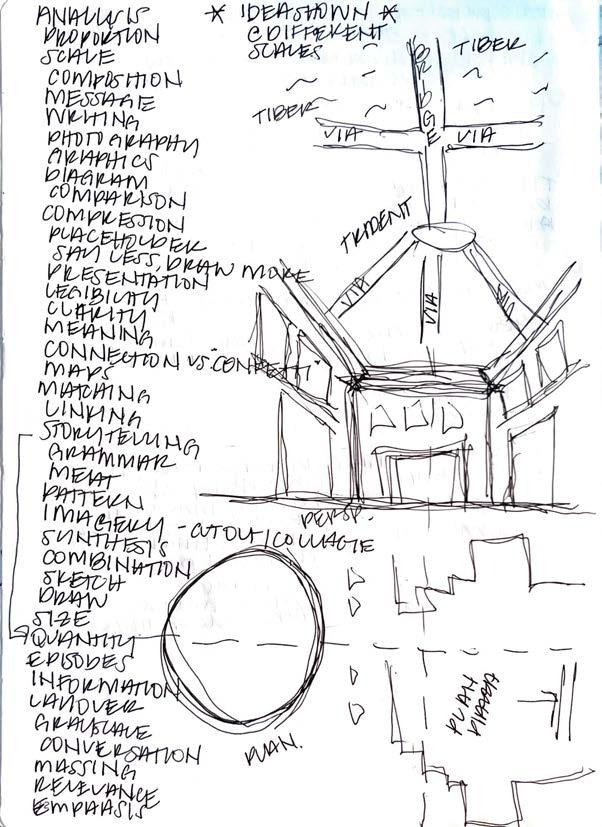 ANALYSIS
PROPORTION
SCALE
COMPOSITION
MESSAGE
WRITING
PHOTOGRAPHY
GRAPHICS
DIAGRAM
COMPARISON
COMPRESSION
PLACEHOLDER
SAY LESS, DRAW MORE
PRESENTATION
LEGIBILITY
CLARITY
MEANING
CONNECTION VS.
MAPS
MATCHING
LINKING
STORYTELLING
GRAMMAR
MEAT
PATTERN
IMAGERY - CUTOUT/COLLAGE
SYNTHESIS
COMBINATION
SKETCH
DRAW
SIZE
QUANTITY
EPISODES
INFORMATION
LAYOVER
GRAYSCALE
CONVERSATION
MASSING
RELEVANCE
EMPHASIS
* IDEA SHOWN *
@ DIFFERENT
SCALES
BRIDGE
TIBER
TIBER
VIA
VIA
TRIDENT
VIA
VIA
VIA
PERSP.
PLAN.
PLAN